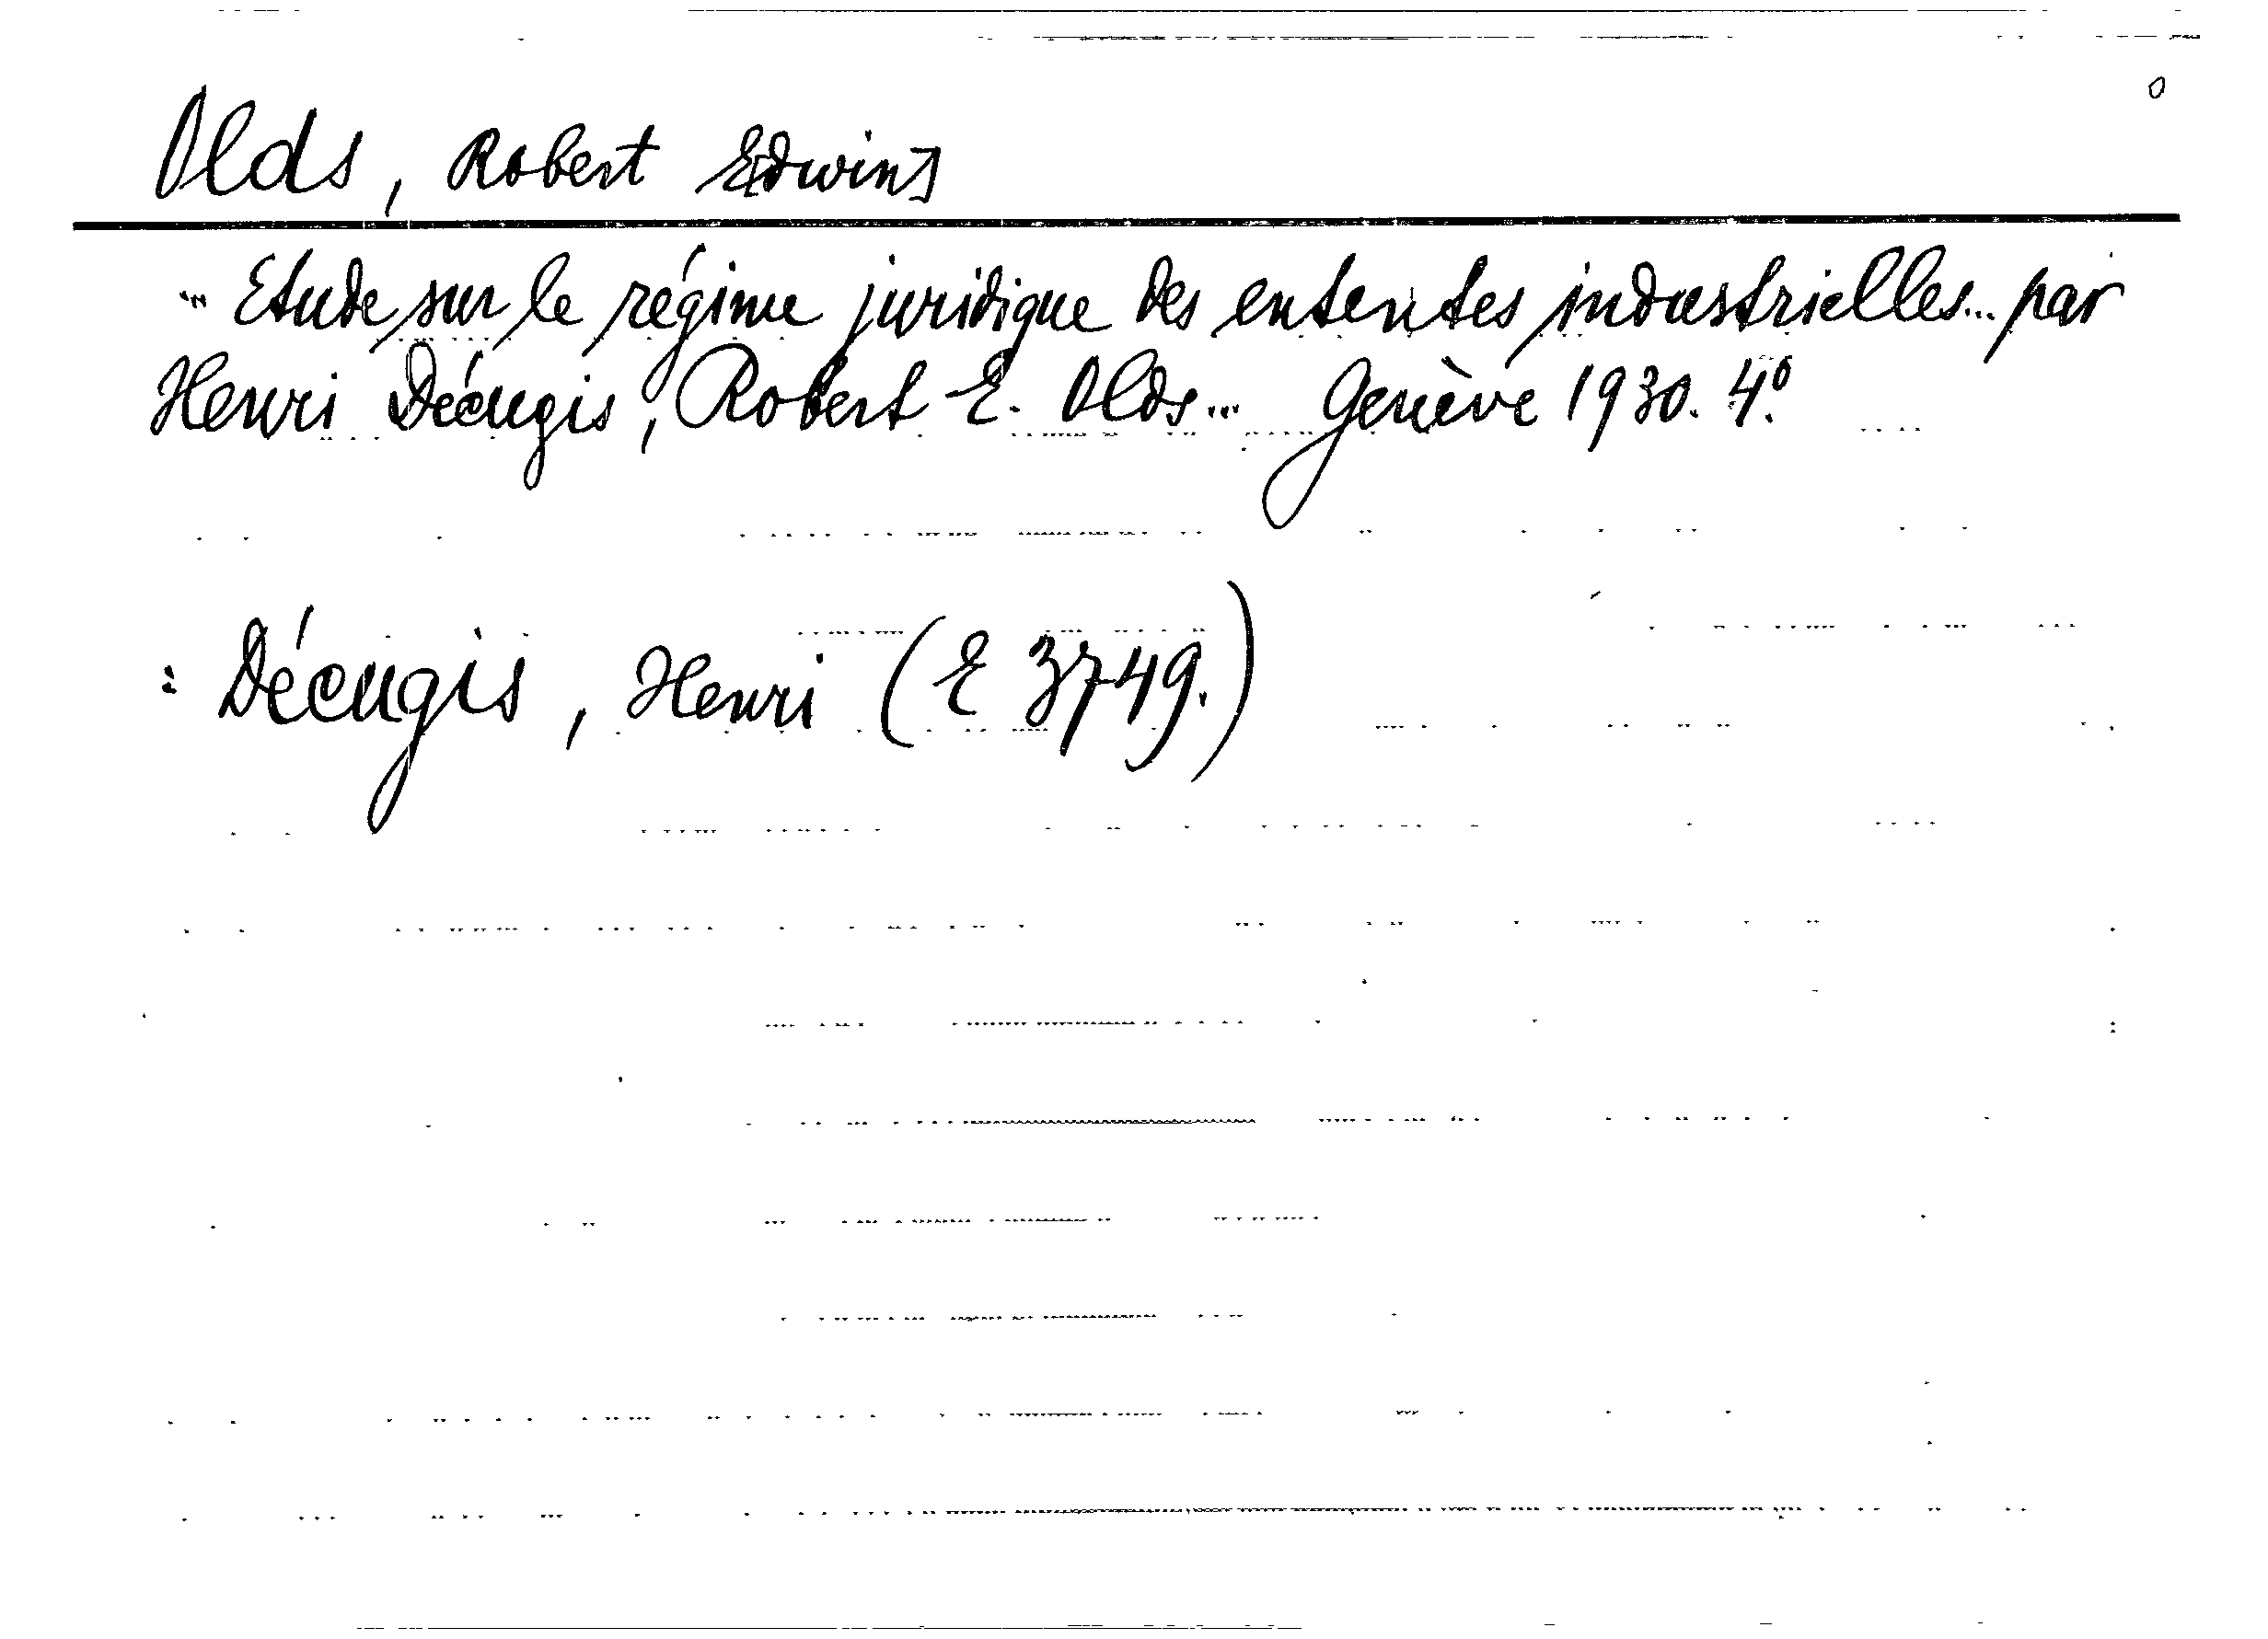 o
Olds, Robert E[dwin]
... Etude sur le régime juridique des ententes industrielles... par
Henri Décugis, Robert E. Olds... Genève 1930. 4º.
: Décugis, Henri (E 3749.)